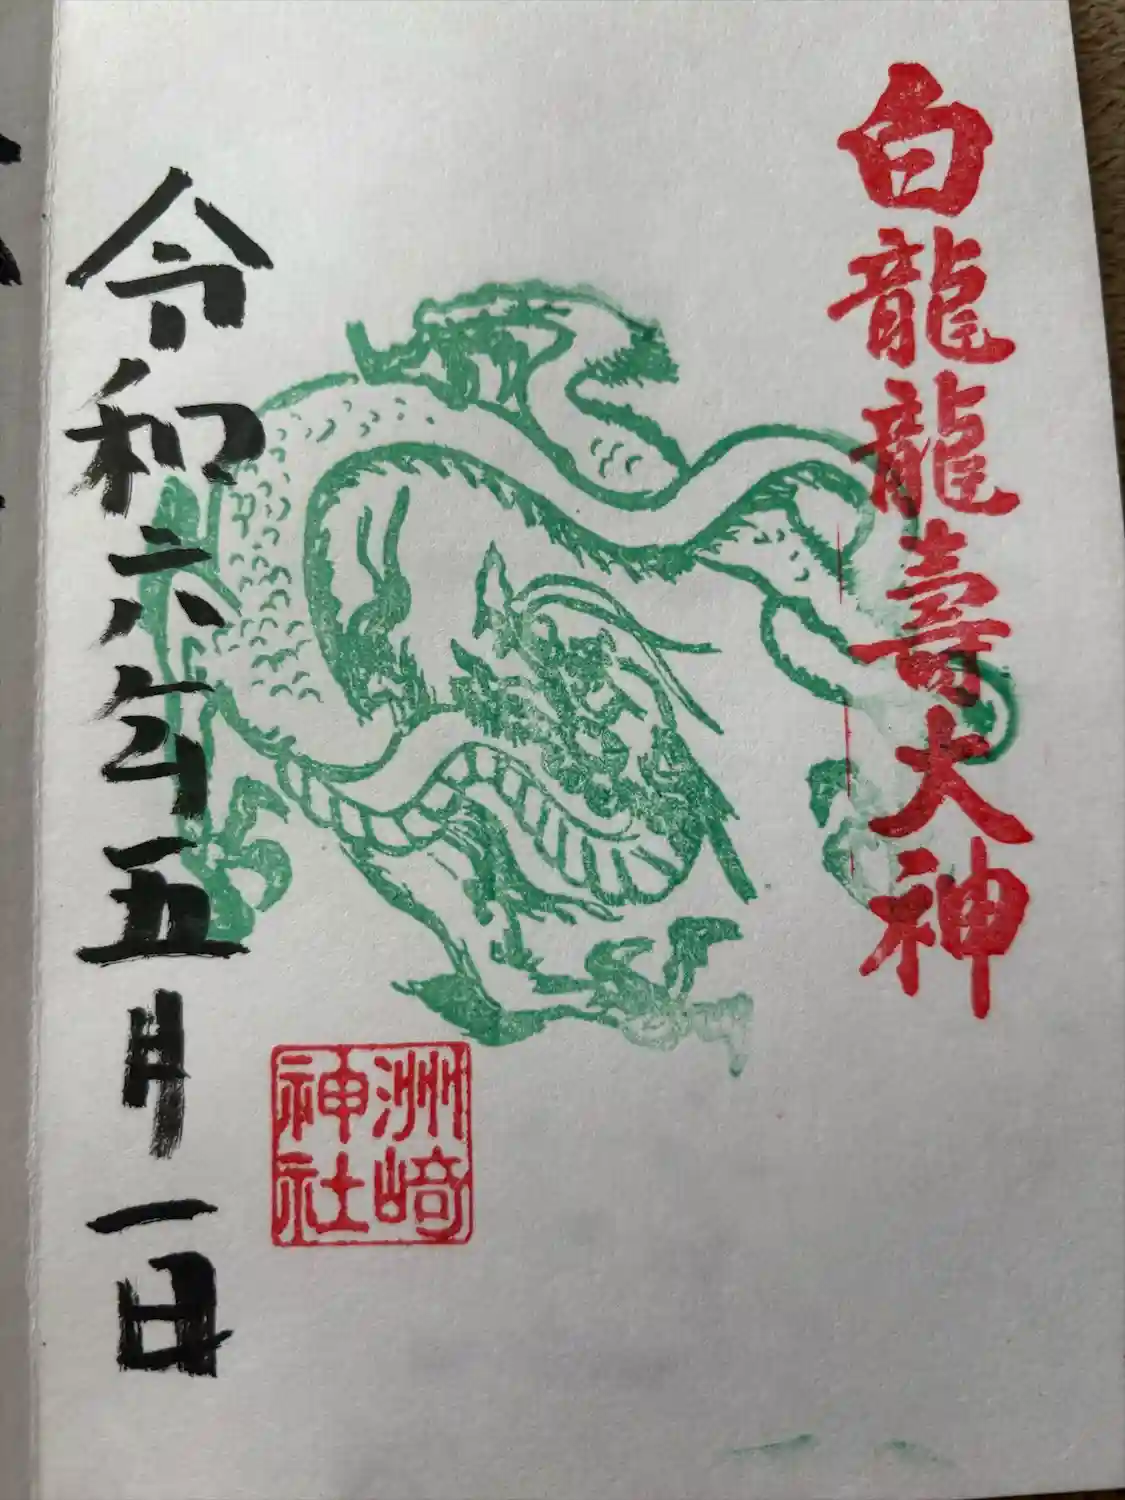 白龍龍壽大神
洲崎
神社
令和六年五月一日